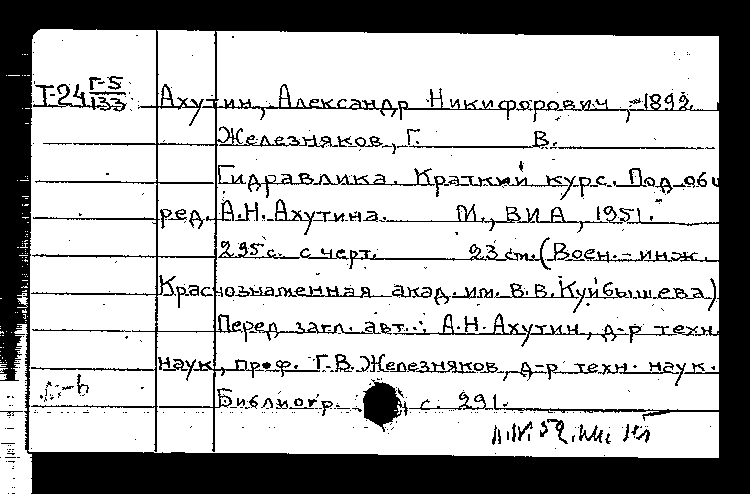 Т-24 Г-5/133 Ахутин, Александр Никифорович, -1892.
Железняков, Г. В.
Гидравлика. Краткий курс. Под общ
ред. А.Н. Ахутина. М., ВИА, 1951.
295 с. с черт. 23 см. (Воен.-инж.
Краснознаменная акад. им. В.В. Куйбышева)
Перед загл. авт.: А.Н. Ахутин, д-р техн.
наук, проф. Г.В. Железняков, д-р техн. наук.
Библиогр. с. 291.